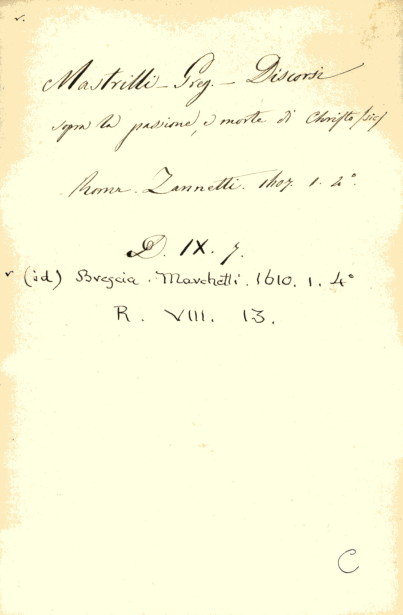 v.
Mastrilli - Greg. - Discorsi
sopra la passione, e morte di Christo (sic)
Roma. Zannetti. 1607. 1. 4°.
D. IX. 7.
v (id) Brescia. Marchetti. 1610. 1. 4°
R. VIII. 13.
C